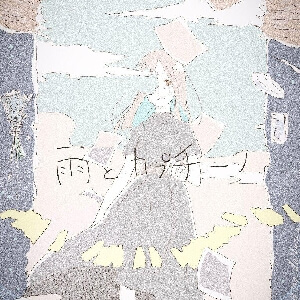 雨とカプチーノ